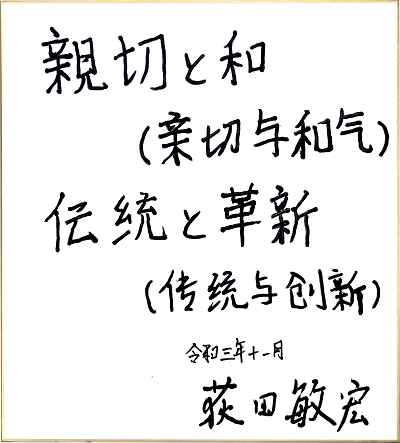 親切と和
(亲切与和气)
伝統と革新
(传统与创新)
令和三年十一月
荻田敏宏